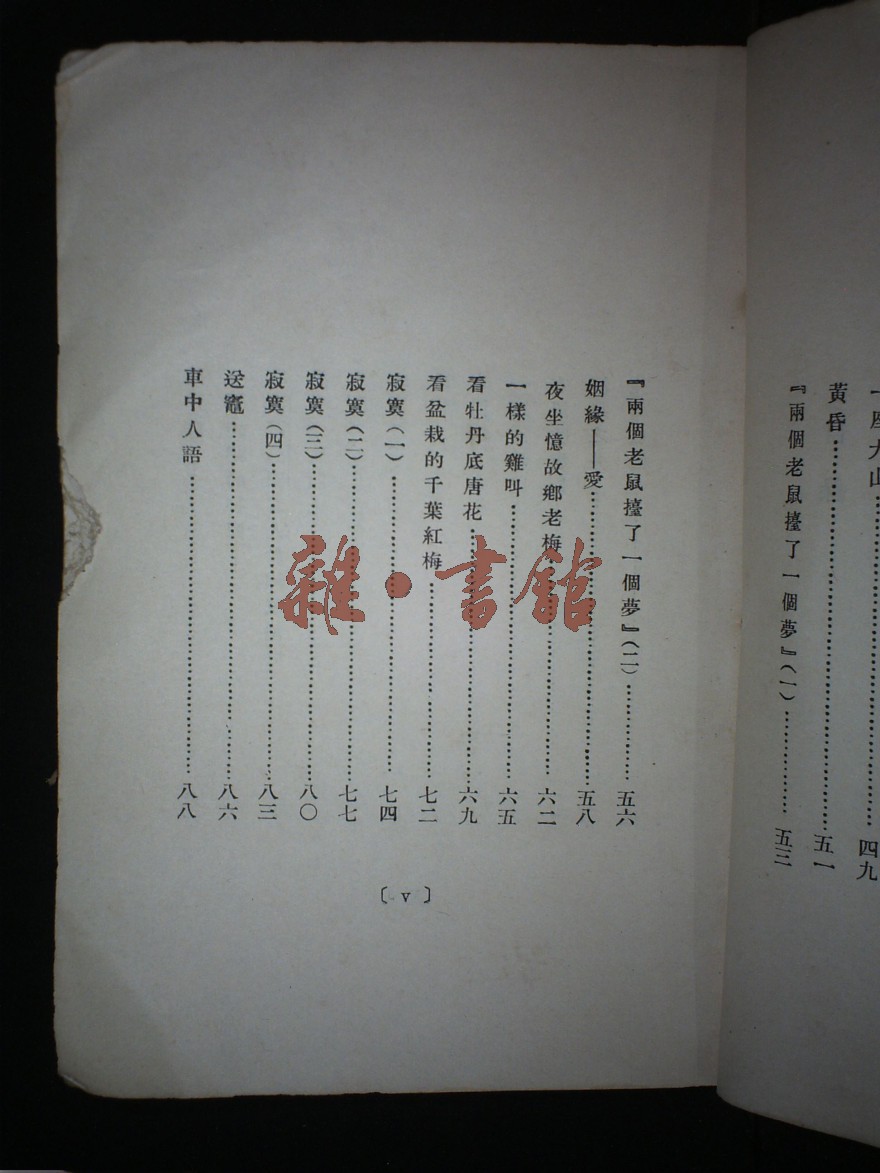 一座大山……四九
黃昏……五一
『兩個老鼠擡了一個夢』(一)……五三
『兩個老鼠擡了一個夢』(二)……五六
姻緣——愛……五八
夜坐憶故鄉老梅……六二
一樣的雞叫……六五
看牡丹底唐花……六九
看盆栽的千葉紅梅……七二
寂寞(一)……七四
寂寞(二)……七七
寂寞(三)……八〇
寂寞(四)……八三
送竈……八六
車中人語……八八
〔v〕
雜·書館